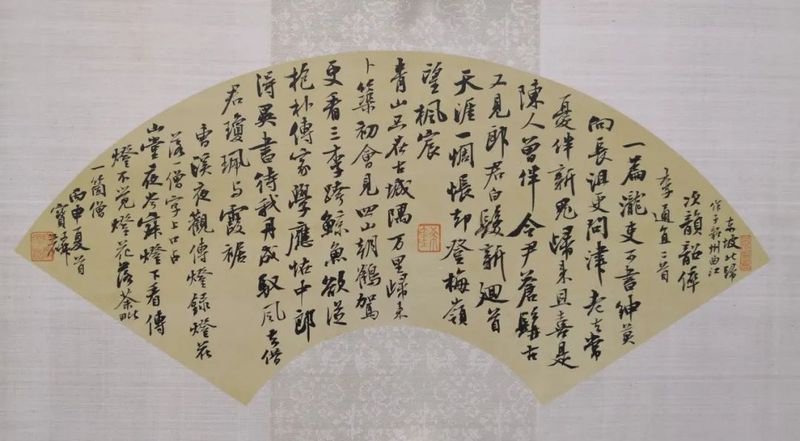 東坡北歸
作于韶州曲江
次韻韶倅
李通直二首
一篇瀧吏可書紳莫
向長沮更問津老去常
憂伴新鬼歸來且喜是
陳人曾伴令尹蒼髯古
又見郎君白髮新迴首
天涯一惆悵却登梅嶺
望楓宸
青山只在古城隅万里歸來
卜築初會見四山朝鶴駕
更看三李跨鯨魚欲從
抱朴傳家學應怪中郎
得異書待我丹成馭風去借
君瓊珮与霞裾
曹溪夜觀傳燈錄燈花
落一僧字上口占
山堂夜岑寂燈下看傳
燈不覺燈花落荼毗
一箇僧
丙申夏首